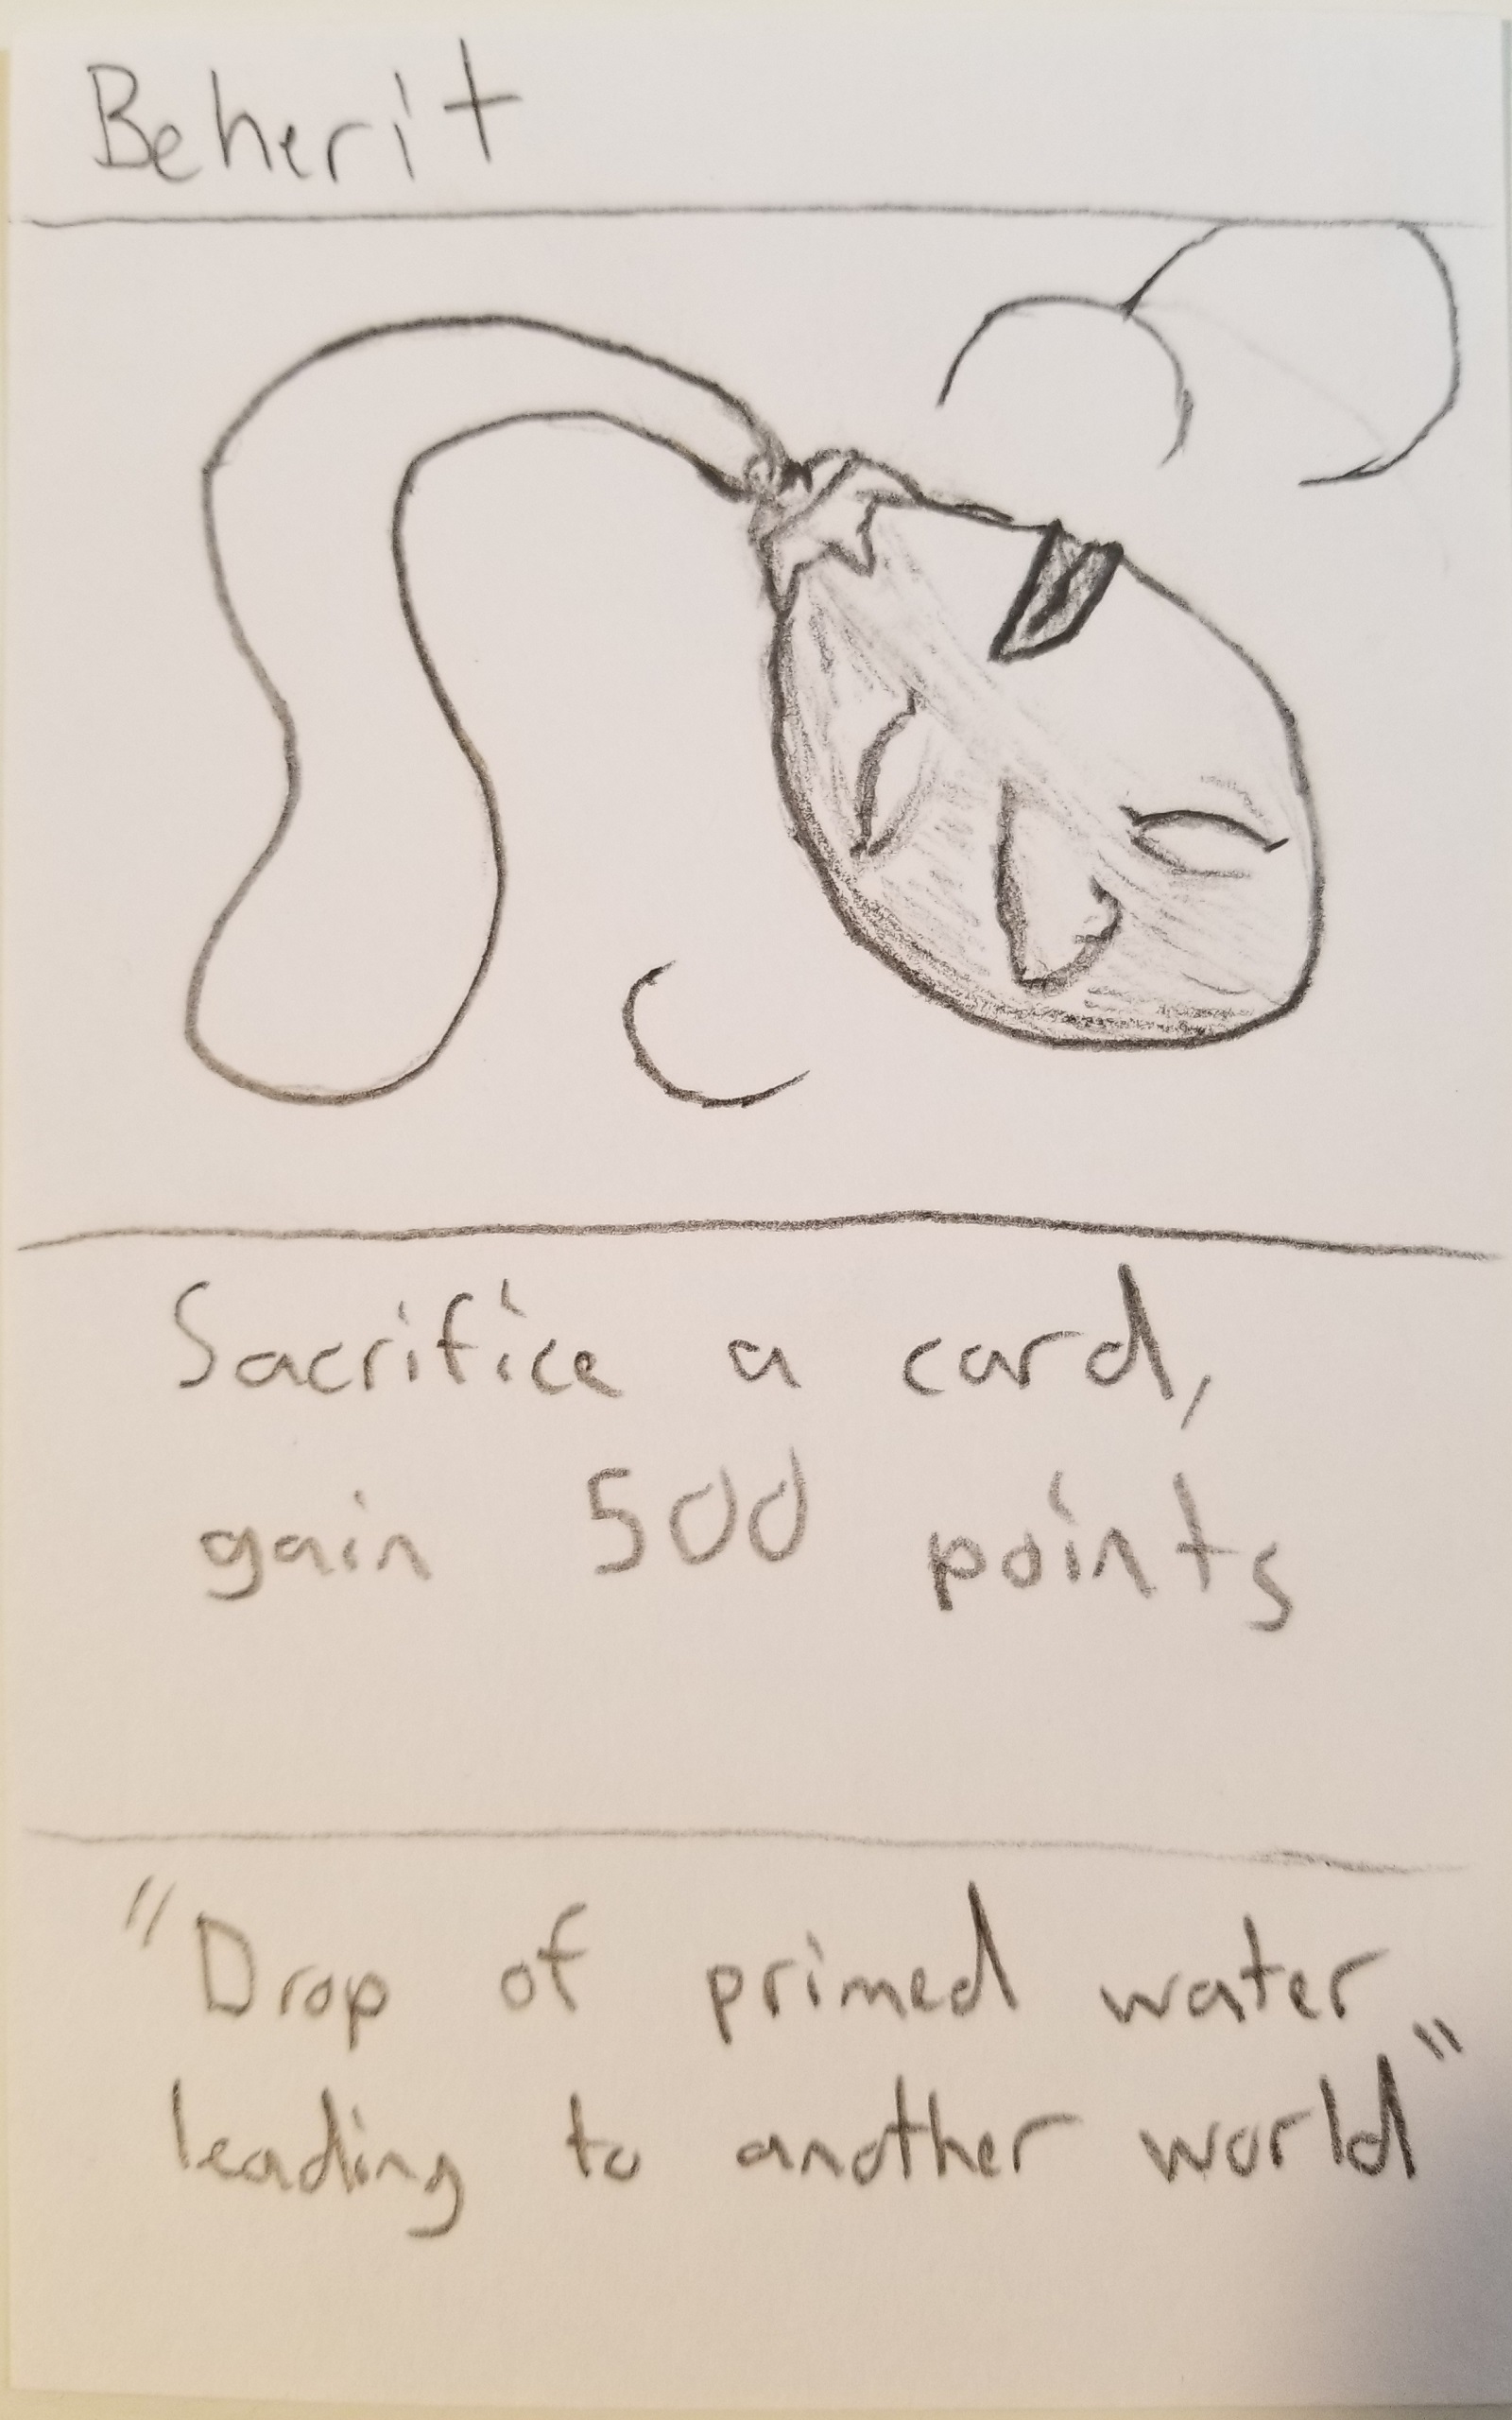 Beherit
Sacrifice a card,
gain 500 points
"Drop of primed water
leading to another world"